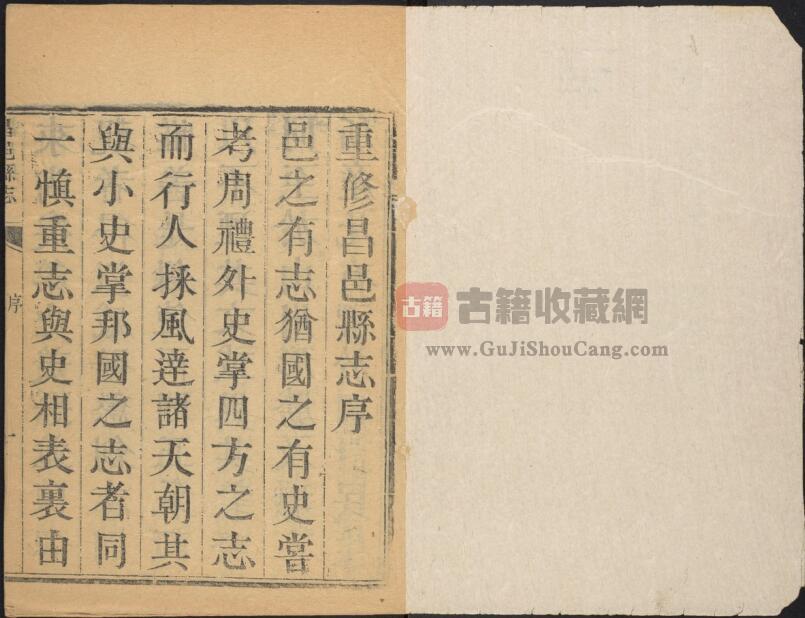 重修昌邑縣志序
邑之有志猶國之有史嘗
考周禮外史掌四方之志
而行人採風達諸天朝其
與小史掌邦國之志者同
一慎重志與史相表裏由
昌邑縣志
序
一
古籍
古籍收藏網
www.GuJiShouCang.com